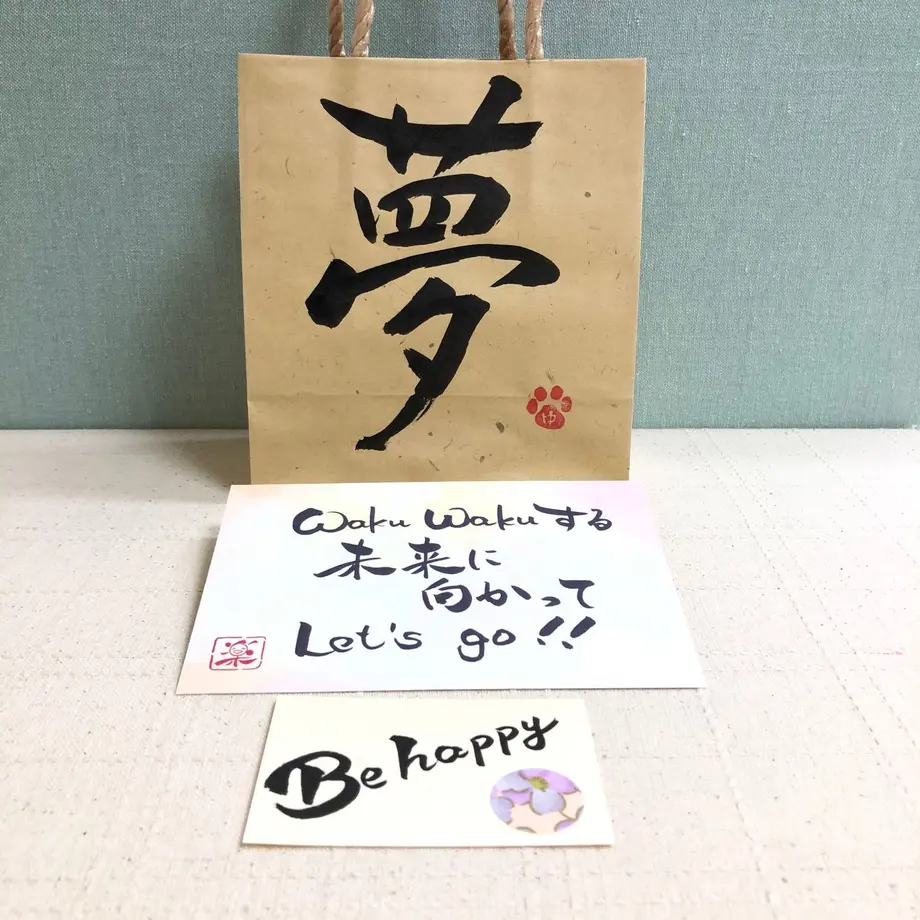 夢
ゆ
Waku Wakuする
未来に
向かって
Let's go!!
楽
Be happy